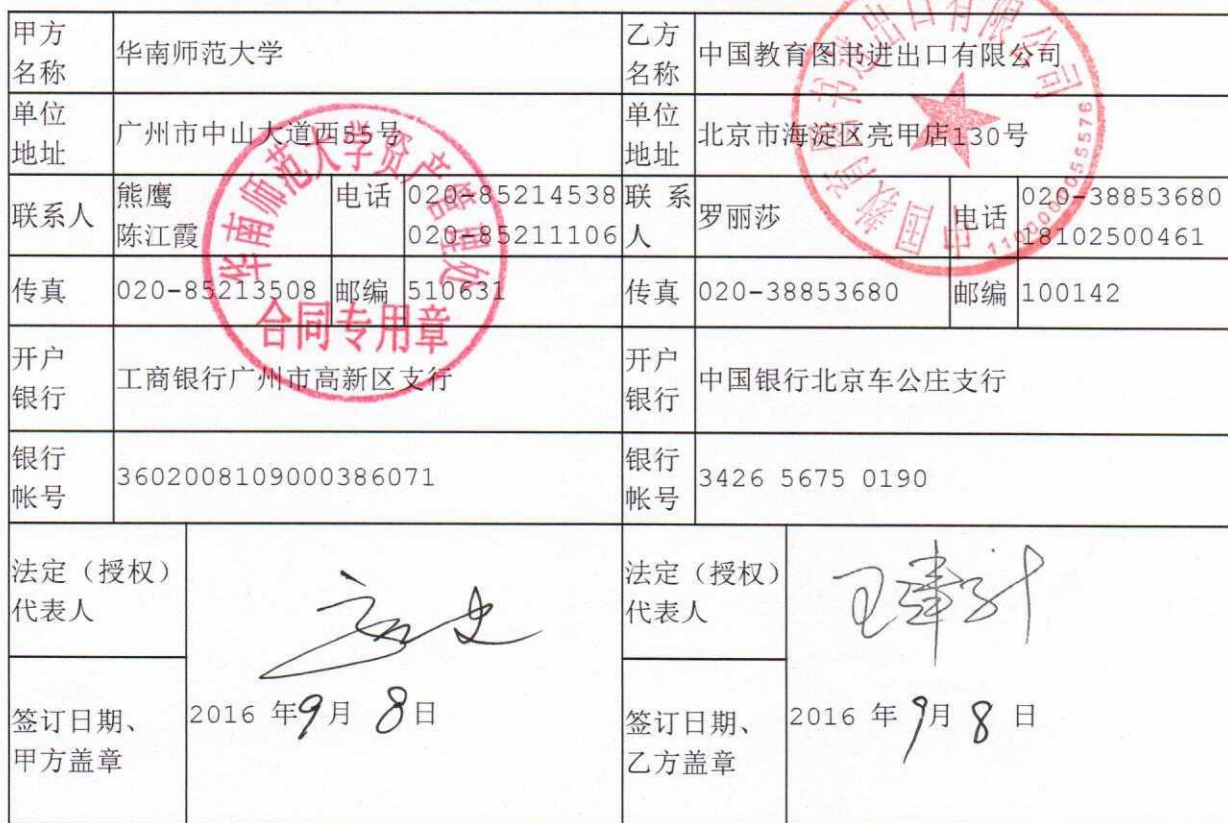 甲方名称 华南师范大学 乙方名称 中国教育图书进出口有限公司
单位地址 广州市中山大道西55号 单位地址 北京市海淀区亮甲店130号
联系人 熊鹰 电话 020-85214538 联系人 罗丽莎 电话 020-38853680
陈江霞 020-85211106 18102500461
传真 020-85213508 邮编 510631 传真 020-38853680 邮编 100142
开户银行 工商银行广州市高新区支行 开户银行 中国银行北京车公庄支行
银行帐号 3602008109000386071 银行帐号 3426 5675 0190
法定（授权）代表人 法定（授权）代表人
签订日期、甲方盖章 2016 年9月 8日 签订日期、乙方盖章 2016 年 9月 8 日
华南师范大学资产管理处
合同专用章
中国教育图书进出口有限公司
1100000055576